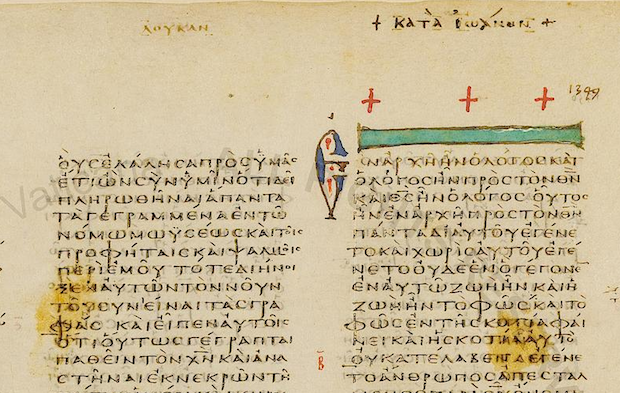 ΛΟΥΚΑΝ
ΟΥϹΕΛΑΛΗϹΑΠΡΟϹΥΜΑϹ
ΕΤΙΩΝϹΥΝΥΜΙΝΟΤΙΔΕΙ
ΠΛΗΡΩΘΗΝΑΙΑΠΑΝΤΑ
ΤΑΓΕΓΡΑΜΜΕΝΑΕΝΤΩ
ΝΟΜΩΜΩΥϹΕΩϹΚΑΙΤΟΙϹ
ΠΡΟΦΗΤΑΙϹΚΑΙΨΑΛΜΟΙϹ
ΠΕΡΙΕΜΟΥΤΟΤΕΔΙΗΝΟΙ
ΞΕΝΑΥΤΩΝΤΟΝΝΟΥΝ
ΤΟΥϹΥΝΕΙΝΑΙΤΑϹΓΡΑ
ΦΑϹ ΚΑΙΕΙΠΕΝΑΥΤΟΙϹ
ΟΤΙΟΥΤΩϹΓΕΓΡΑΠΤΑΙ
ΠΑΘΕΙΝΤΟΝΧ̅Ν̅ΚΑΙΑΝΑ
ϹΤΗΝΑΙΕΚΝΕΚΡΩΝΤΗ
+ ΚΑΤᾺ ἸΩΆΝΝΗΝ +
1349
ΕΝΑΡΧΗΗΝΟΛΟΓΟϹΚΑΙ
ΟΛΟΓΟϹΗΝΠΡΟϹΤΟΝΘ̅Ν̅
ΚΑΙΘ̅Ϲ̅ΗΝΟΛΟΓΟϹΟΥΤΟϹ
ΗΝΕΝΑΡΧΗΠΡΟϹΤΟΝΘ̅Ν̅
ΠΑΝΤΑΔΙΑΥΤΟΥΕΓΕΝΕ
ΤΟΚΑΙΧΩΡΙϹΑΥΤΟΥΕΓΕ
ΝΕΤΟΟΥΔΕΕΝΟΓΕΓΟΝΕ
ΕΝΑΥΤΩΖΩΗΗΝΚΑΙΗ
ΖΩΗΗΝΤΟΦΩϹΚΑΙΤΟ
ΦΩϹΕΝΤΗϹΚΟΤΙΑΦΑΙ
ΝΕΙΚΑΙΗϹΚΟΤΙΑΑΥΤΟ
Β
ΟΥΚΑΤΕΛΑΒΕΝΕΓΕΝΕ
ΤΟΑΝΘΡΩΠΟϹΑΠΕϹΤΑΛ